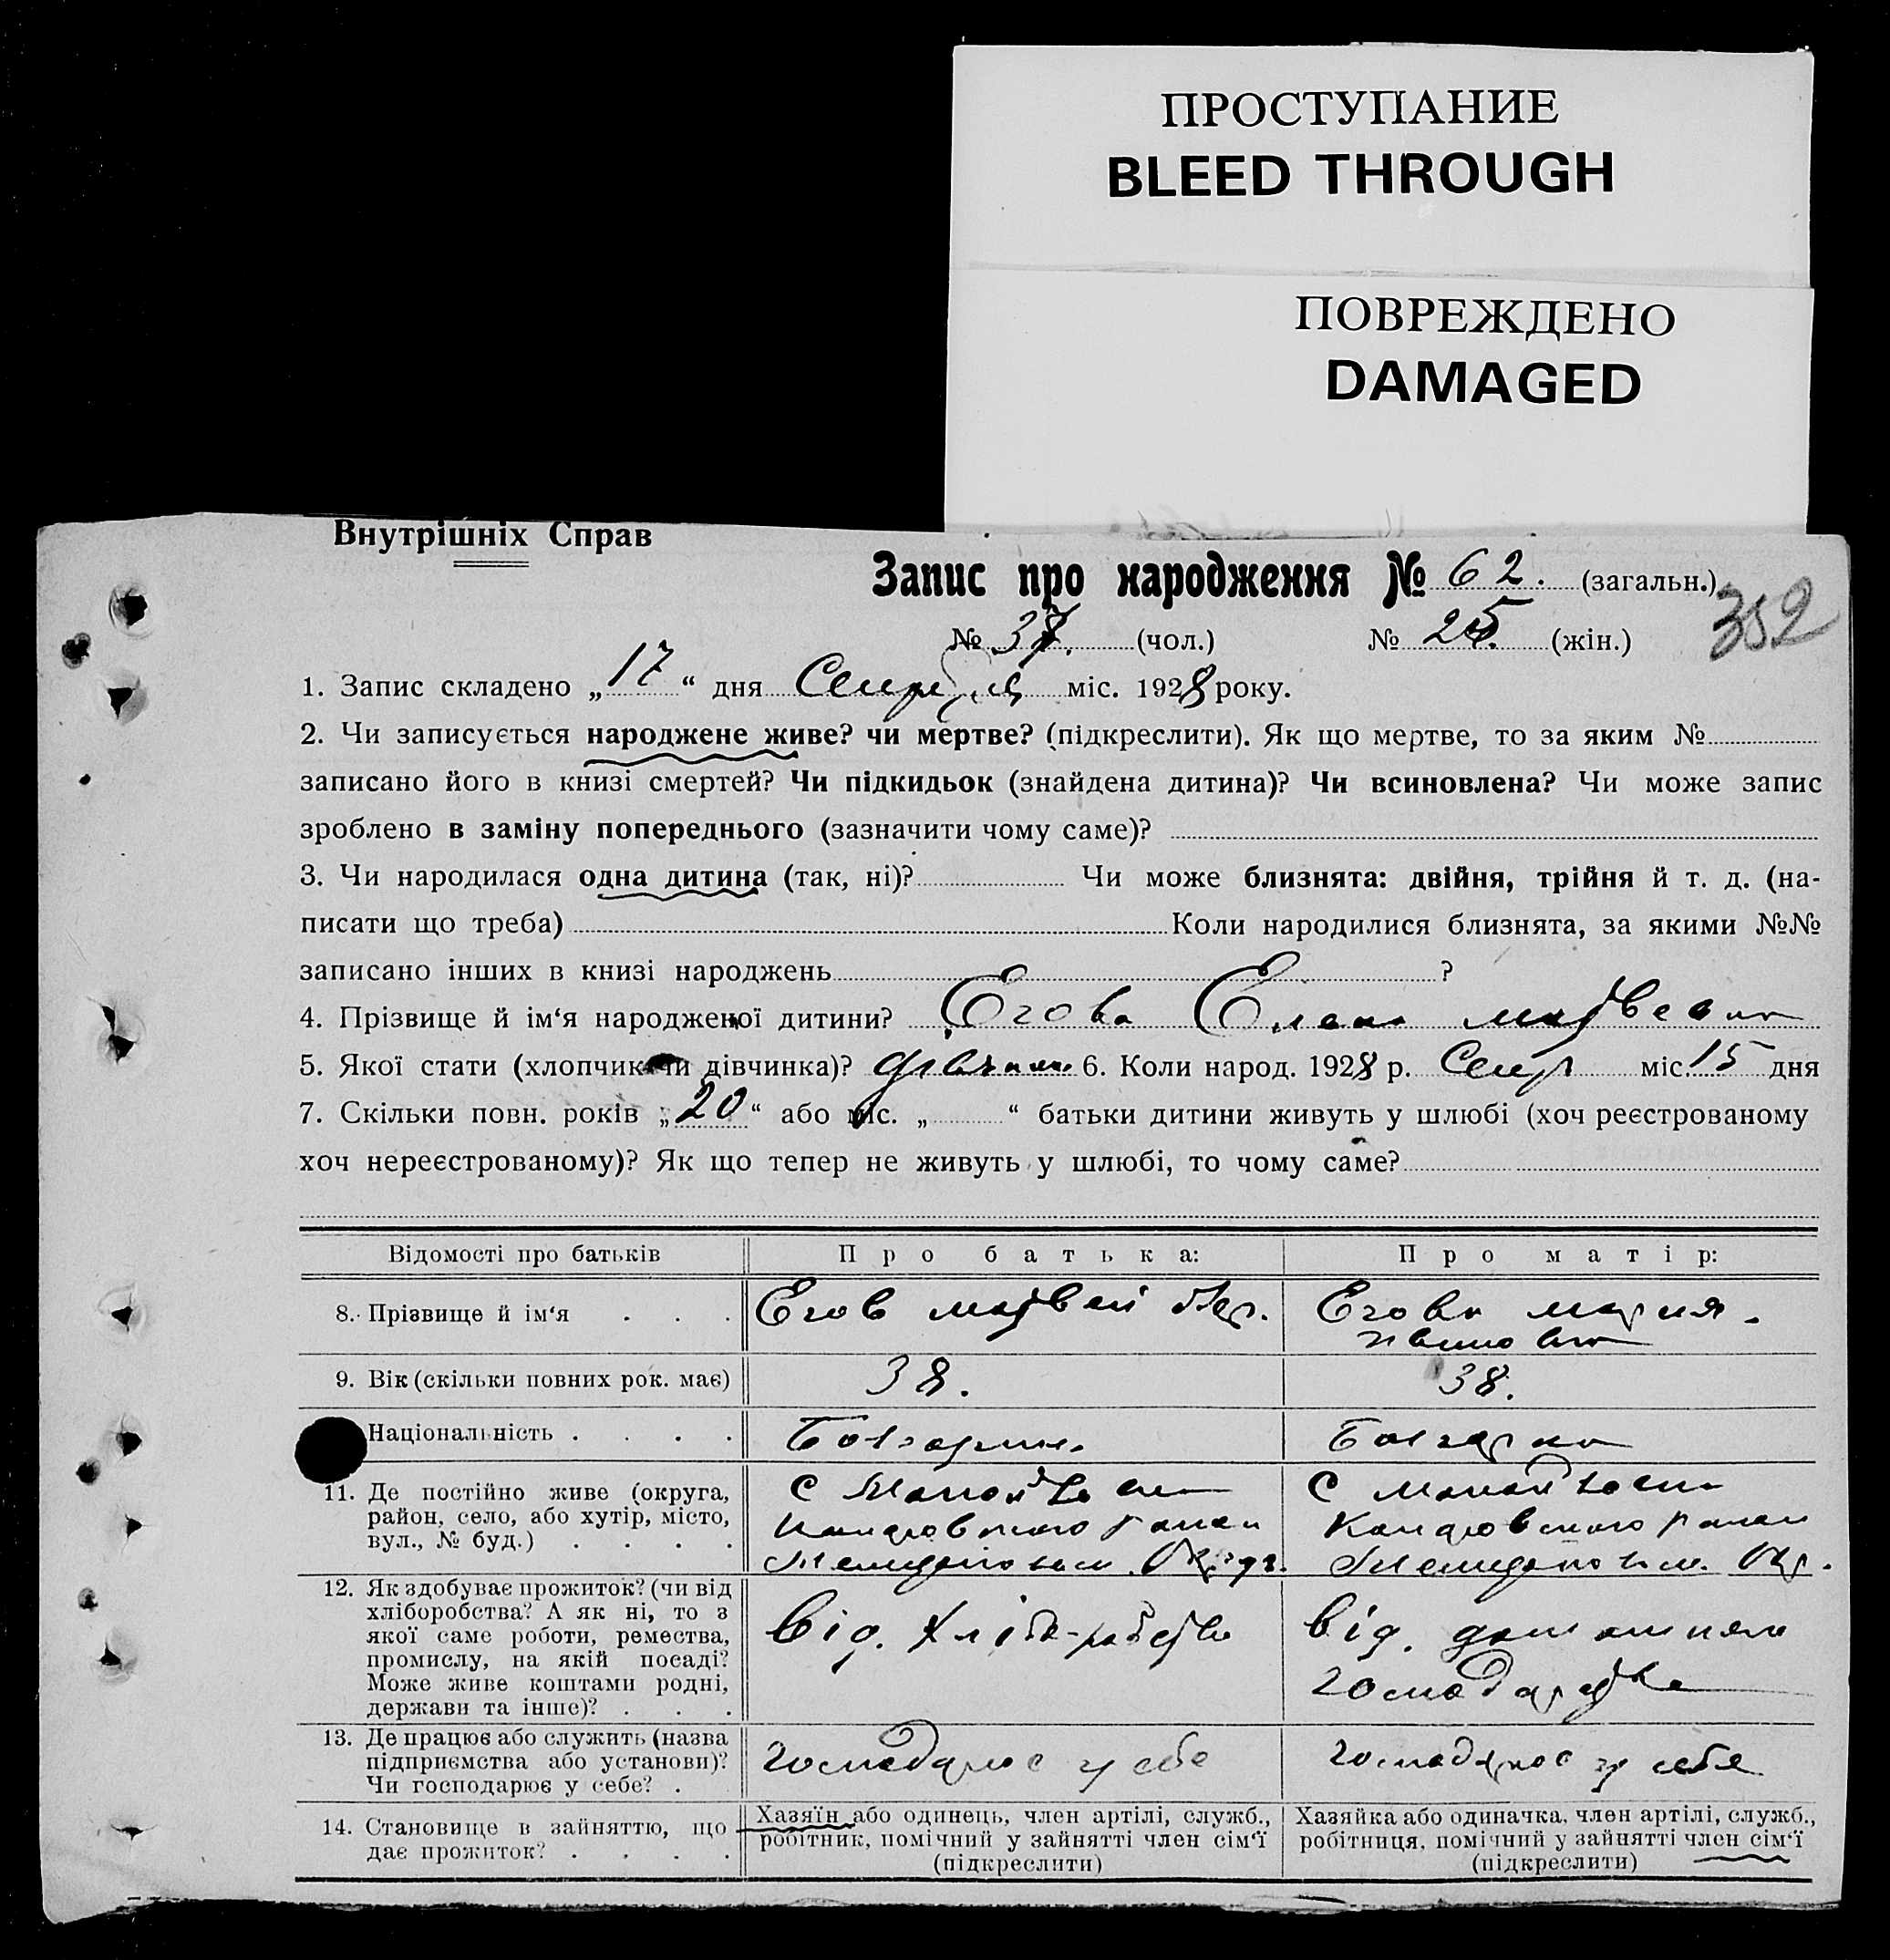 ПРОСТУПАНИЕ
BLEED THROUGH
ПОВРЕЖДЕНО
DAMAGED
Внутрішніх Справ
Запис про народження № 62. (загальн.)
352
№ 37. (чол.) № 25. (жін.)
1. Запис складено „17“ дня міс. 1928 року.
2. Чи записується народжене живе? чи мертве? (підкреслити). Як що мертве, то за яким №
записано його в книзі смертей? Чи підкидьок (знайдена дитина)? Чи всиновлена? Чи може запис
зроблено в заміну попереднього (зазначити чому саме)?
3. Чи народилася одна дитина (так, ні)? Чи може близнята: двійня, трійня й т. д. (на-
писати що треба) Коли народилися близнята, за якими №№
записано інших в книзі народжень ?
4. Прізвище й ім‘я народженої дитини? Егова Елена
5. Якої стати (хлопчик чи дівчинка)? 6. Коли народ. 1928 р. Сент міс. 15 дня
7. Скільки повн. років „20“ або міс. „ “ батьки дитини живуть у шлюбі (хоч реєстрованому
хоч нереєстрованому)? Як що тепер не живуть у шлюбі, то чому саме?
Відомості про батьків Про батька: Про матір:
8. Прізвище й ім‘я . . . Егов Матвей Егова Мария.
Ивановна
9. Вік (скільки повних рок. має) 38. 38.
Національність . . . . Болгарин. Болгарка
11. Де постійно живе (округа,
район, село, або хутір, місто,
вул., № буд.) . . . .
С
С
12. Як здобуває прожиток? (чи від
хліборобства? А як ні, то з
якої саме роботи, ремества,
промислу, на якій посаді?
Може живе коштами родні,
держави та інше)? . . .
Від. Хлібо-робства
Від. домашняго
господарства
13. Де працює або служить (назва
підприємства або установи)?
Чи господарює у себе? .
господарює у себе
господарює у себя
14. Становище в зайняттю, що
дає прожиток? . . . .
Хазяїн або одинець, член артілі, служб.,
робітник, помічний у зайнятті член сім‘ї
(підкреслити)
Хазяйка або одиначка, член артілі, служб.,
робітниця, помічний у зайнятті член сім‘ї
(підкреслити)